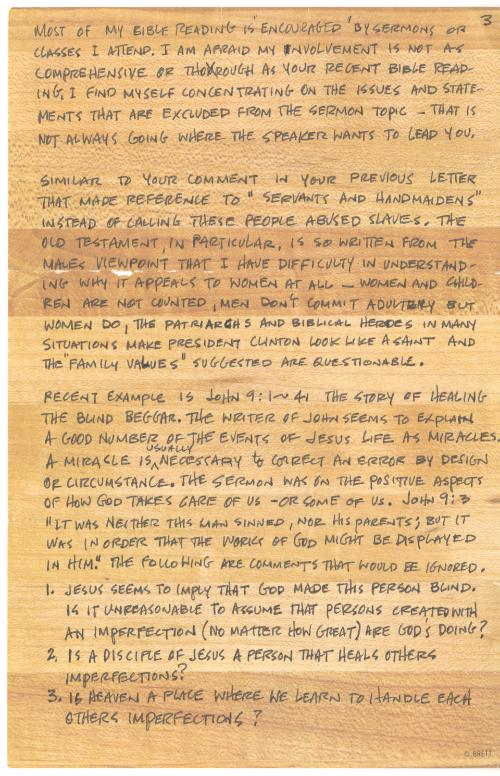 3
MOST OF MY BIBLE READING IS "ENCOURAGED" BY SERMONS OR
CLASSES I ATTEND. I AM AFRAID MY INVOLVEMENT IS NOT AS
COMPREHENSIVE OR THOROUGH AS YOUR RECENT BIBLE READ-
ING. I FIND MYSELF CONCENTRATING ON THE ISSUES AND STATE-
MENTS THAT ARE EXCLUDED FROM THE SERMON TOPIC - THAT IS
NOT ALWAYS GOING WHERE THE SPEAKER WANTS TO LEAD YOU.
SIMILAR TO YOUR COMMENT IN YOUR PREVIOUS LETTER
THAT MADE REFERENCE TO "SERVANTS AND HANDMAIDENS"
INSTEAD OF CALLING THESE PEOPLE ABUSED SLAVES. THE
OLD TESTAMENT, IN PARTICULAR, IS SO WRITTEN FROM THE
MALES VIEWPOINT THAT I HAVE DIFFICULTY IN UNDERSTAND-
ING WHY IT APPEALS TO WOMEN AT ALL - WOMEN AND CHILD-
REN ARE NOT COUNTED, MEN DON'T COMMIT ADULTERY BUT
WOMEN DO, THE PATRIARCHS AND BIBLICAL HEROES IN MANY
SITUATIONS MAKE PRESIDENT CLINTON LOOK LIKE A SAINT AND
THE "FAMILY VALUES" SUGGESTED ARE QUESTIONABLE.
RECENT EXAMPLE IS JOHN 9:1~41 THE STORY OF HEALING
THE BLIND BEGGAR. THE WRITER OF JOHN SEEMS TO EXPLAIN
A GOOD NUMBER OF THE EVENTS OF JESUS LIFE AS MIRACLES.
A MIRACLE IS USUALLY NECESSARY TO CORRECT AN ERROR BY DESIGN
OR CIRCUMSTANCE. THE SERMON WAS ON THE POSITIVE ASPECTS
OF HOW GOD TAKES CARE OF US - OR SOME OF US. JOHN 9:3
"IT WAS NEITHER THIS MAN SINNED, NOR HIS PARENTS; BUT IT
WAS IN ORDER THAT THE WORKS OF GOD MIGHT BE DISPLAYED
IN HIM." THE FOLLOWING ARE COMMENTS THAT WOULD BE IGNORED.
1. JESUS SEEMS TO IMPLY THAT GOD MADE THIS PERSON BLIND.
IS IT UNREASONABLE TO ASSUME THAT PERSONS CREATED WITH
AN IMPERFECTION (NO MATTER HOW GREAT) ARE GOD'S DOING?
2. IS A DISCIPLE OF JESUS A PERSON THAT HEALS OTHERS
IMPERFECTIONS?
3. IS HEAVEN A PLACE WHERE WE LEARN TO HANDLE EACH
OTHERS IMPERFECTIONS?
© BRETT